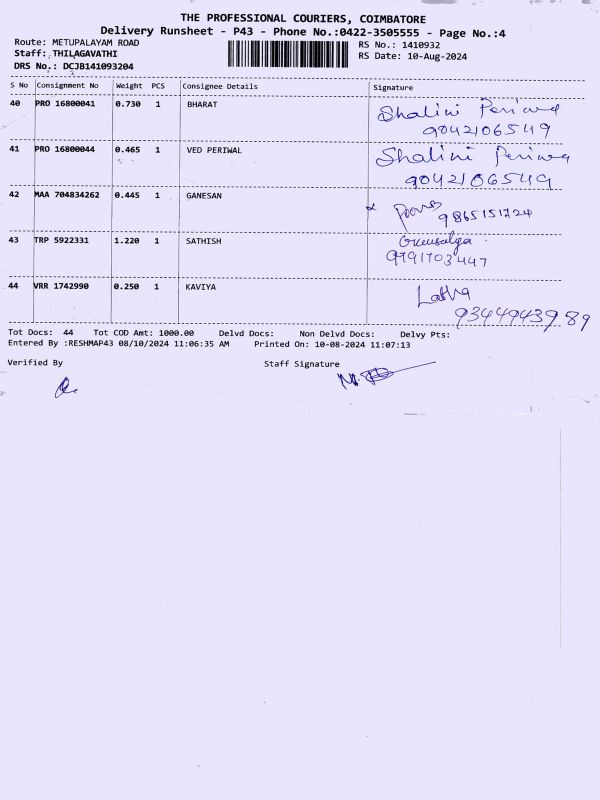 THE PROFESSIONAL COURIERS, COIMBATORE
Delivery Runsheet - P43 - Phone No.:0422-3505555 - Page No.:4
Route: METUPALAYAM ROAD
RS No.: 1410932
Staff: THILAGAVATHI
RS Date: 10-Aug-2024
DRS No.: DCJB141093204
S No Consignment No Weight PCS Consignee Details Signature
40 PRO 16800041 0.730 1 BHARAT Shalini Periwal
9042106549
41 PRO 16800044 0.465 1 VED PERIWAL Shalini Periwal
9042106549
42 MAA 704834262 0.445 1 GANESAN
9865151724
43 TRP 5922331 1.220 1 SATHISH
9791703447
44 VRR 1742990 0.250 1 KAVIYA Latha
9344943989
Tot Docs: 44 Tot COD Amt: 1000.00 Delvd Docs: Non Delvd Docs: Delvy Pts:
Entered By :RESHMAP43 08/10/2024 11:06:35 AM Printed On: 10-08-2024 11:07:13
Verified By Staff Signature